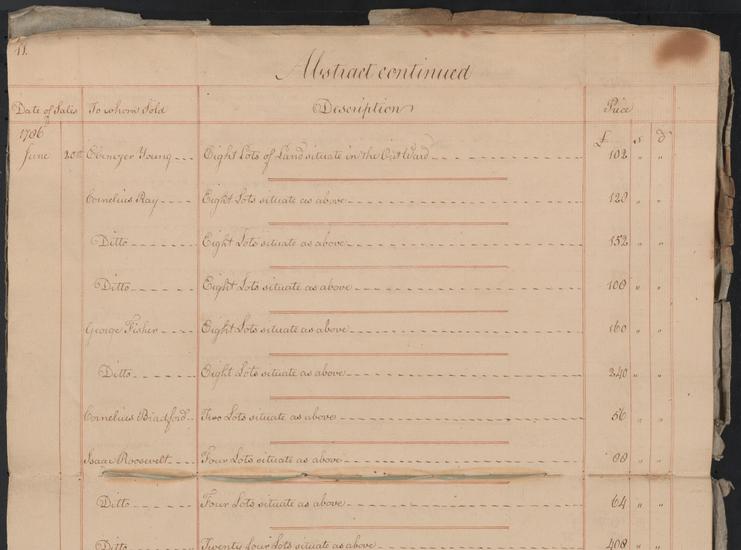 11.
Abstract continued
Date of Sales To whom Sold Description Price
1786 £ s d
June 20th Ebenezer Young Eight Lots of Land situate in the Out Ward 102 " "
Cornelius Ray Eight Lots situate as above 120 " "
Ditto Eight Lots situate as above 152 " "
Ditto Eight Lots situate as above " "
George Fisher Eight Lots situate as above 160 " "
Ditto Eight Lots situate as above 240 " "
Cornelius Bradford Two Lots situate as above 56 " "
Isaac Roosevelt Four Lots situate as above " "
Ditto Four Lots situate as above 64 " "
Ditto Twenty four Lots situate as above 408 " "